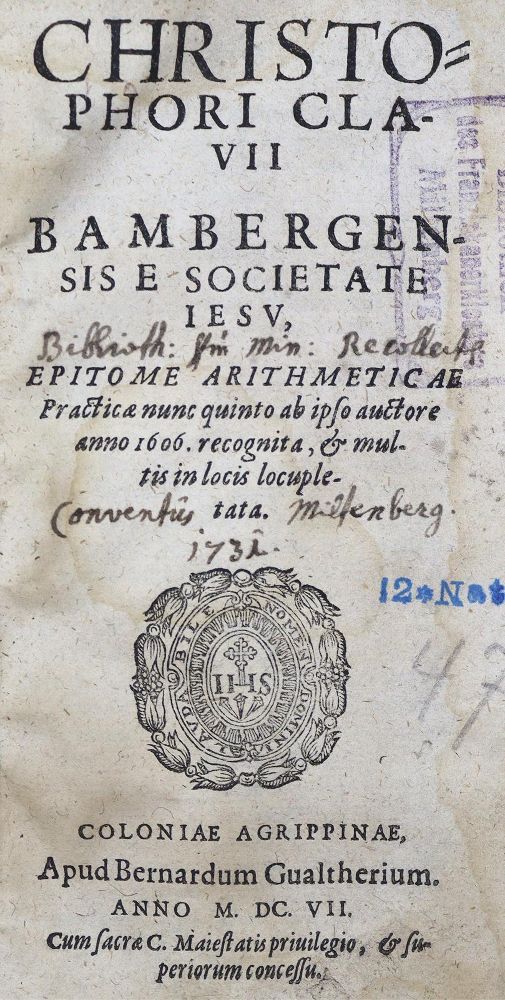 CHRISTO=
PHORI CLA-
VII
BAMBERGEN-
SIS E SOCIETATE
IESV,
Biblioth: Min:
EPITOME ARITHMETICAE
Practicæ nunc quinto ab ipſo auctore
anno 1606. recognita, & mul-
tis in locis locuple-
Conventûs tata. Miltenberg.
1731.
12*Nat
47
LAVDABILE NOMEN DOMINI
IHS
COLONIAE AGRIPPINAE,
Apud Bernardum Gualtherium.
ANNO M. DC. VII.
Cum ſacræ C. Maieſtatis priuilegio, & ſu-
periorum conceſſu.